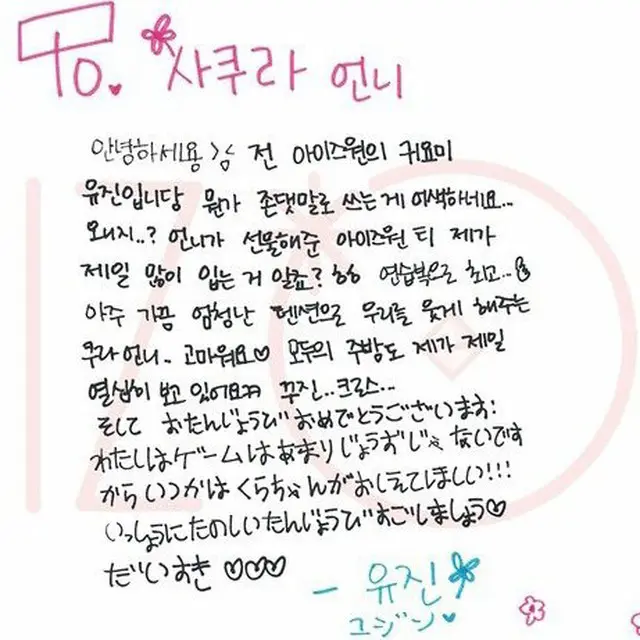 To. 사쿠라 언니
안녕하세용 >< 전 아이즈원의 귀요미
유진입니당 뭔가 존댓말로 쓰는 게 어색하네요...
왜지..? 언니가 선물해준 아이즈원 티 제가
제일 많이 입는 거 알죠? ㅎㅎ 연습복으로 최고...
아주 가끔 엄청난 텐션으로 우리를 웃게 해주는
쿠라 언니.. 고마워요♡ 모두의 주방도 제가 제일
열심히 보고 있어요ㅋㅋ 꾸진..크로스...
そして おたんじょうび おめでとうございます!
わたしはゲームはあまりじょうずじゃ ないです
から いつかは くらちゃんが おしえてほしい!!!
いっしょうにたのしいたんじょうび すごしましょう♡
だいすき ♡♡♡
- 유진
ユジン♥
IZ